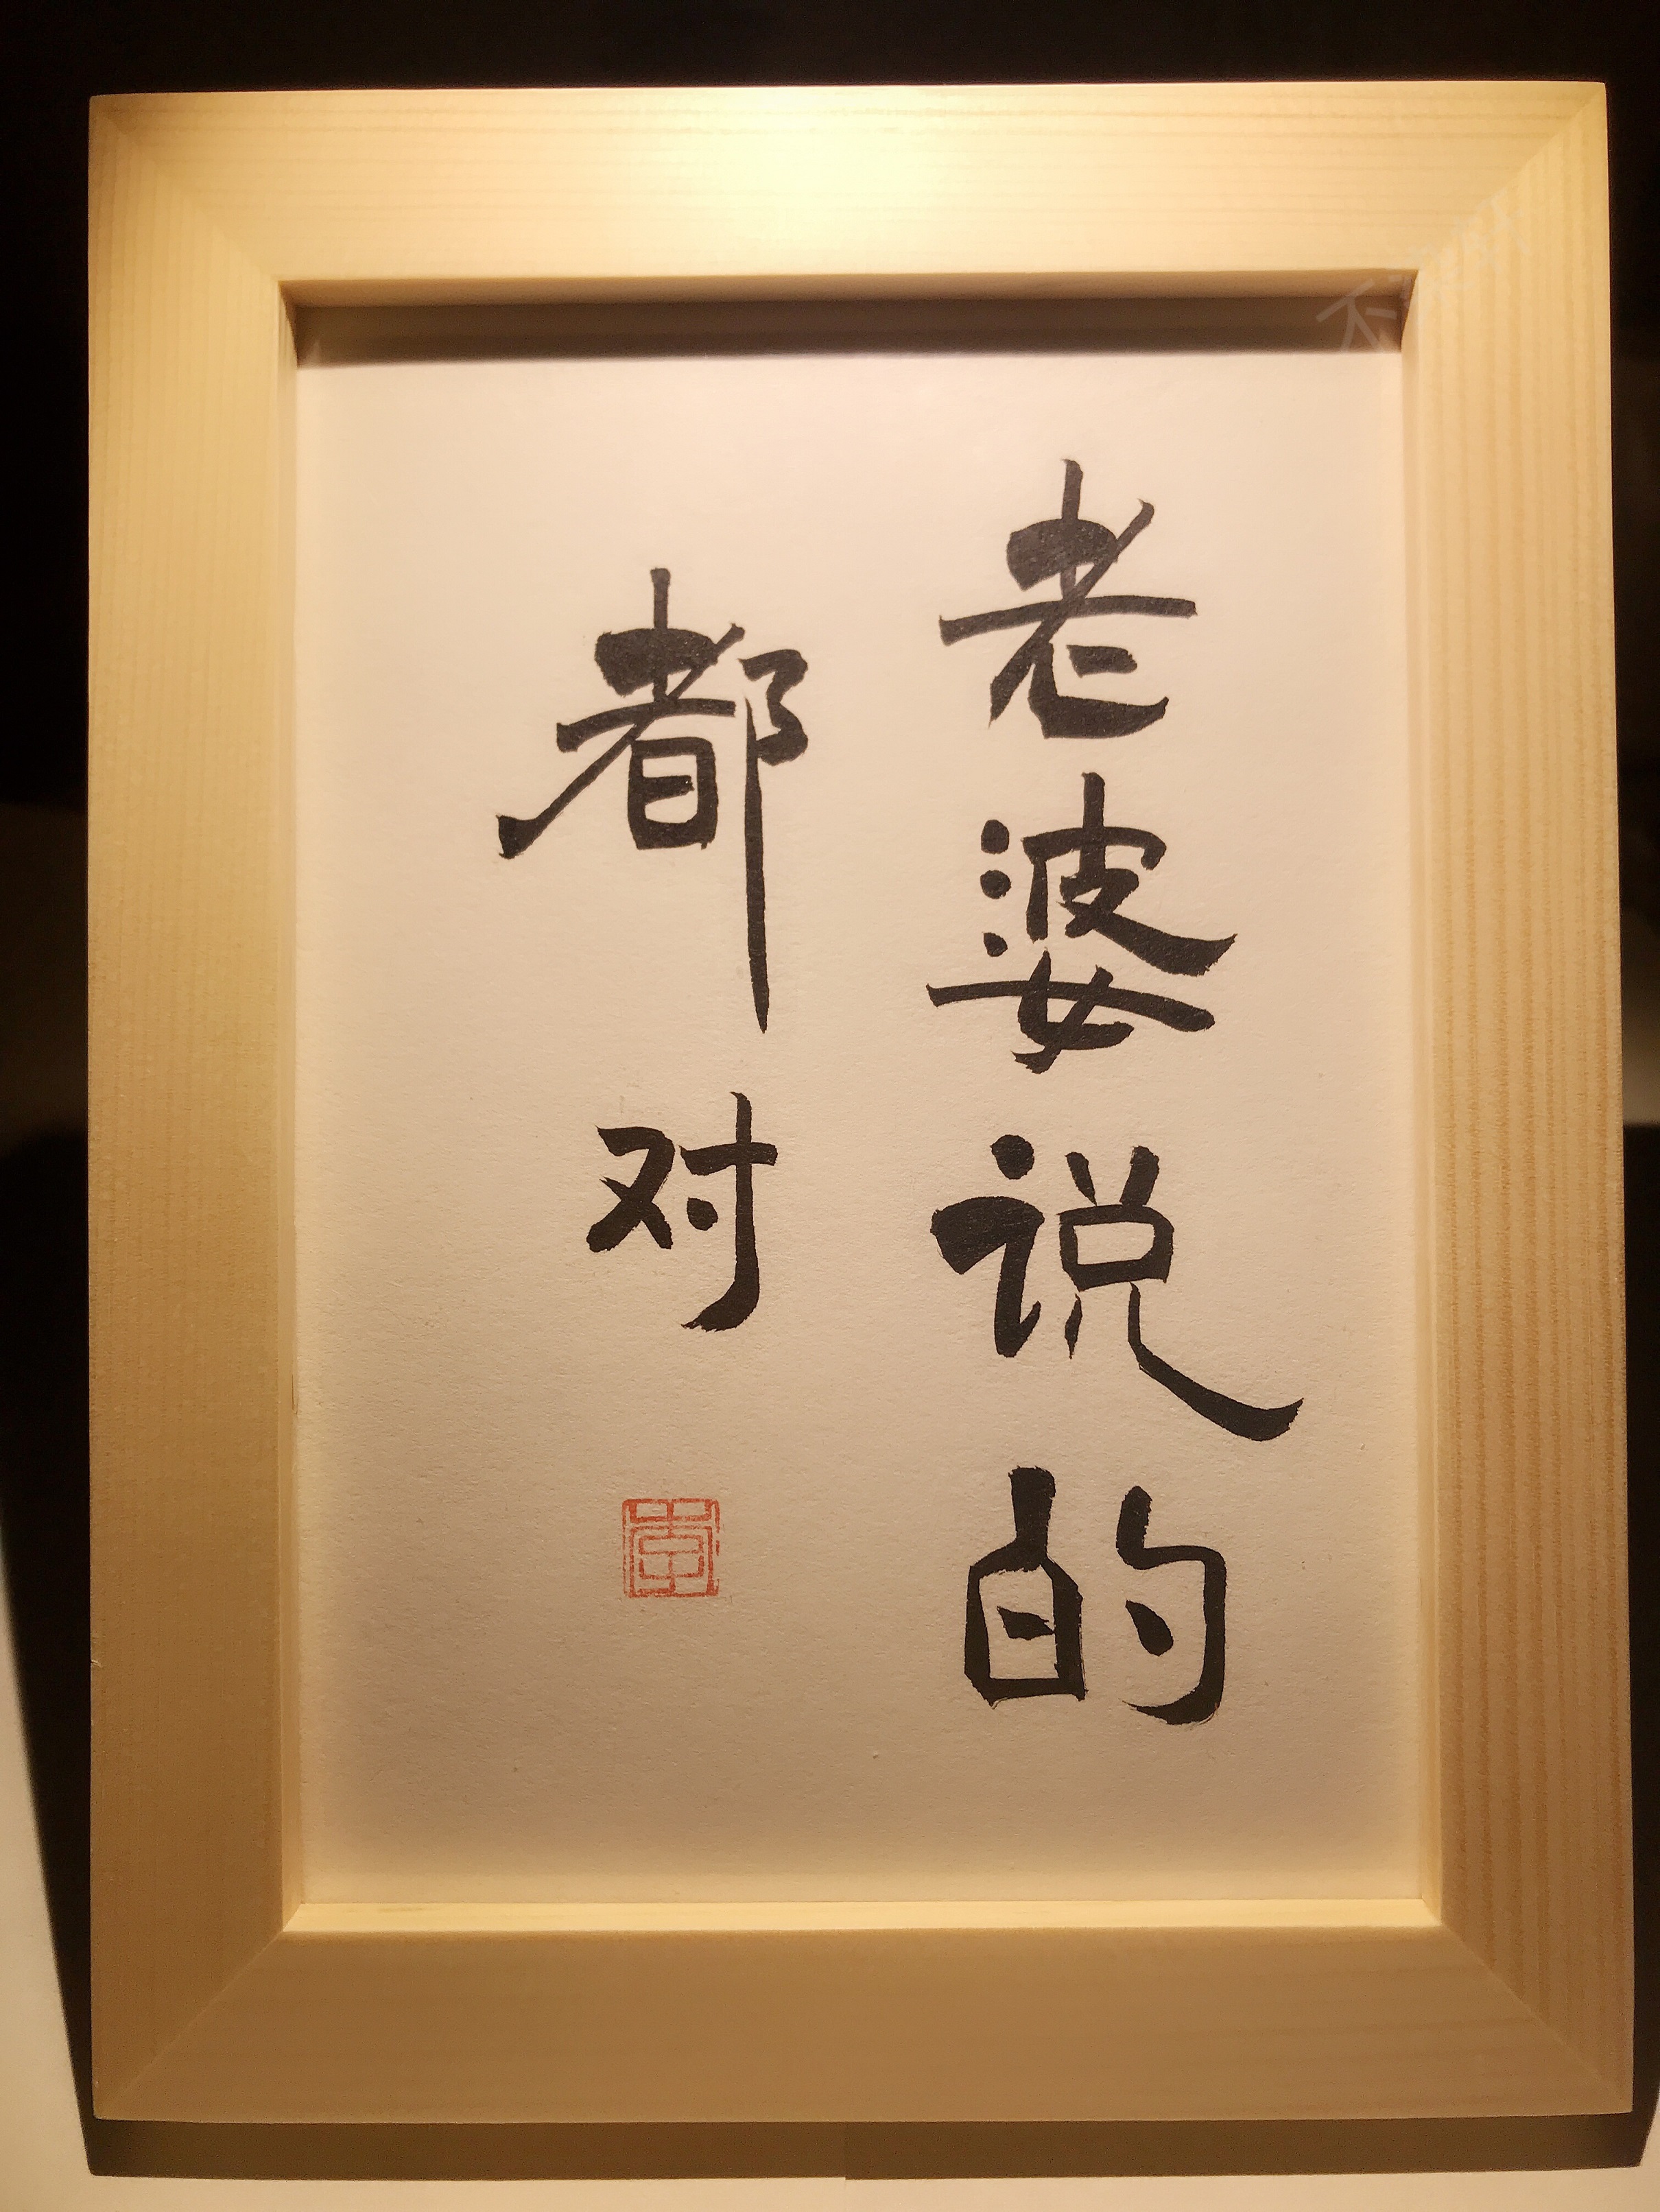 老婆说的
都对